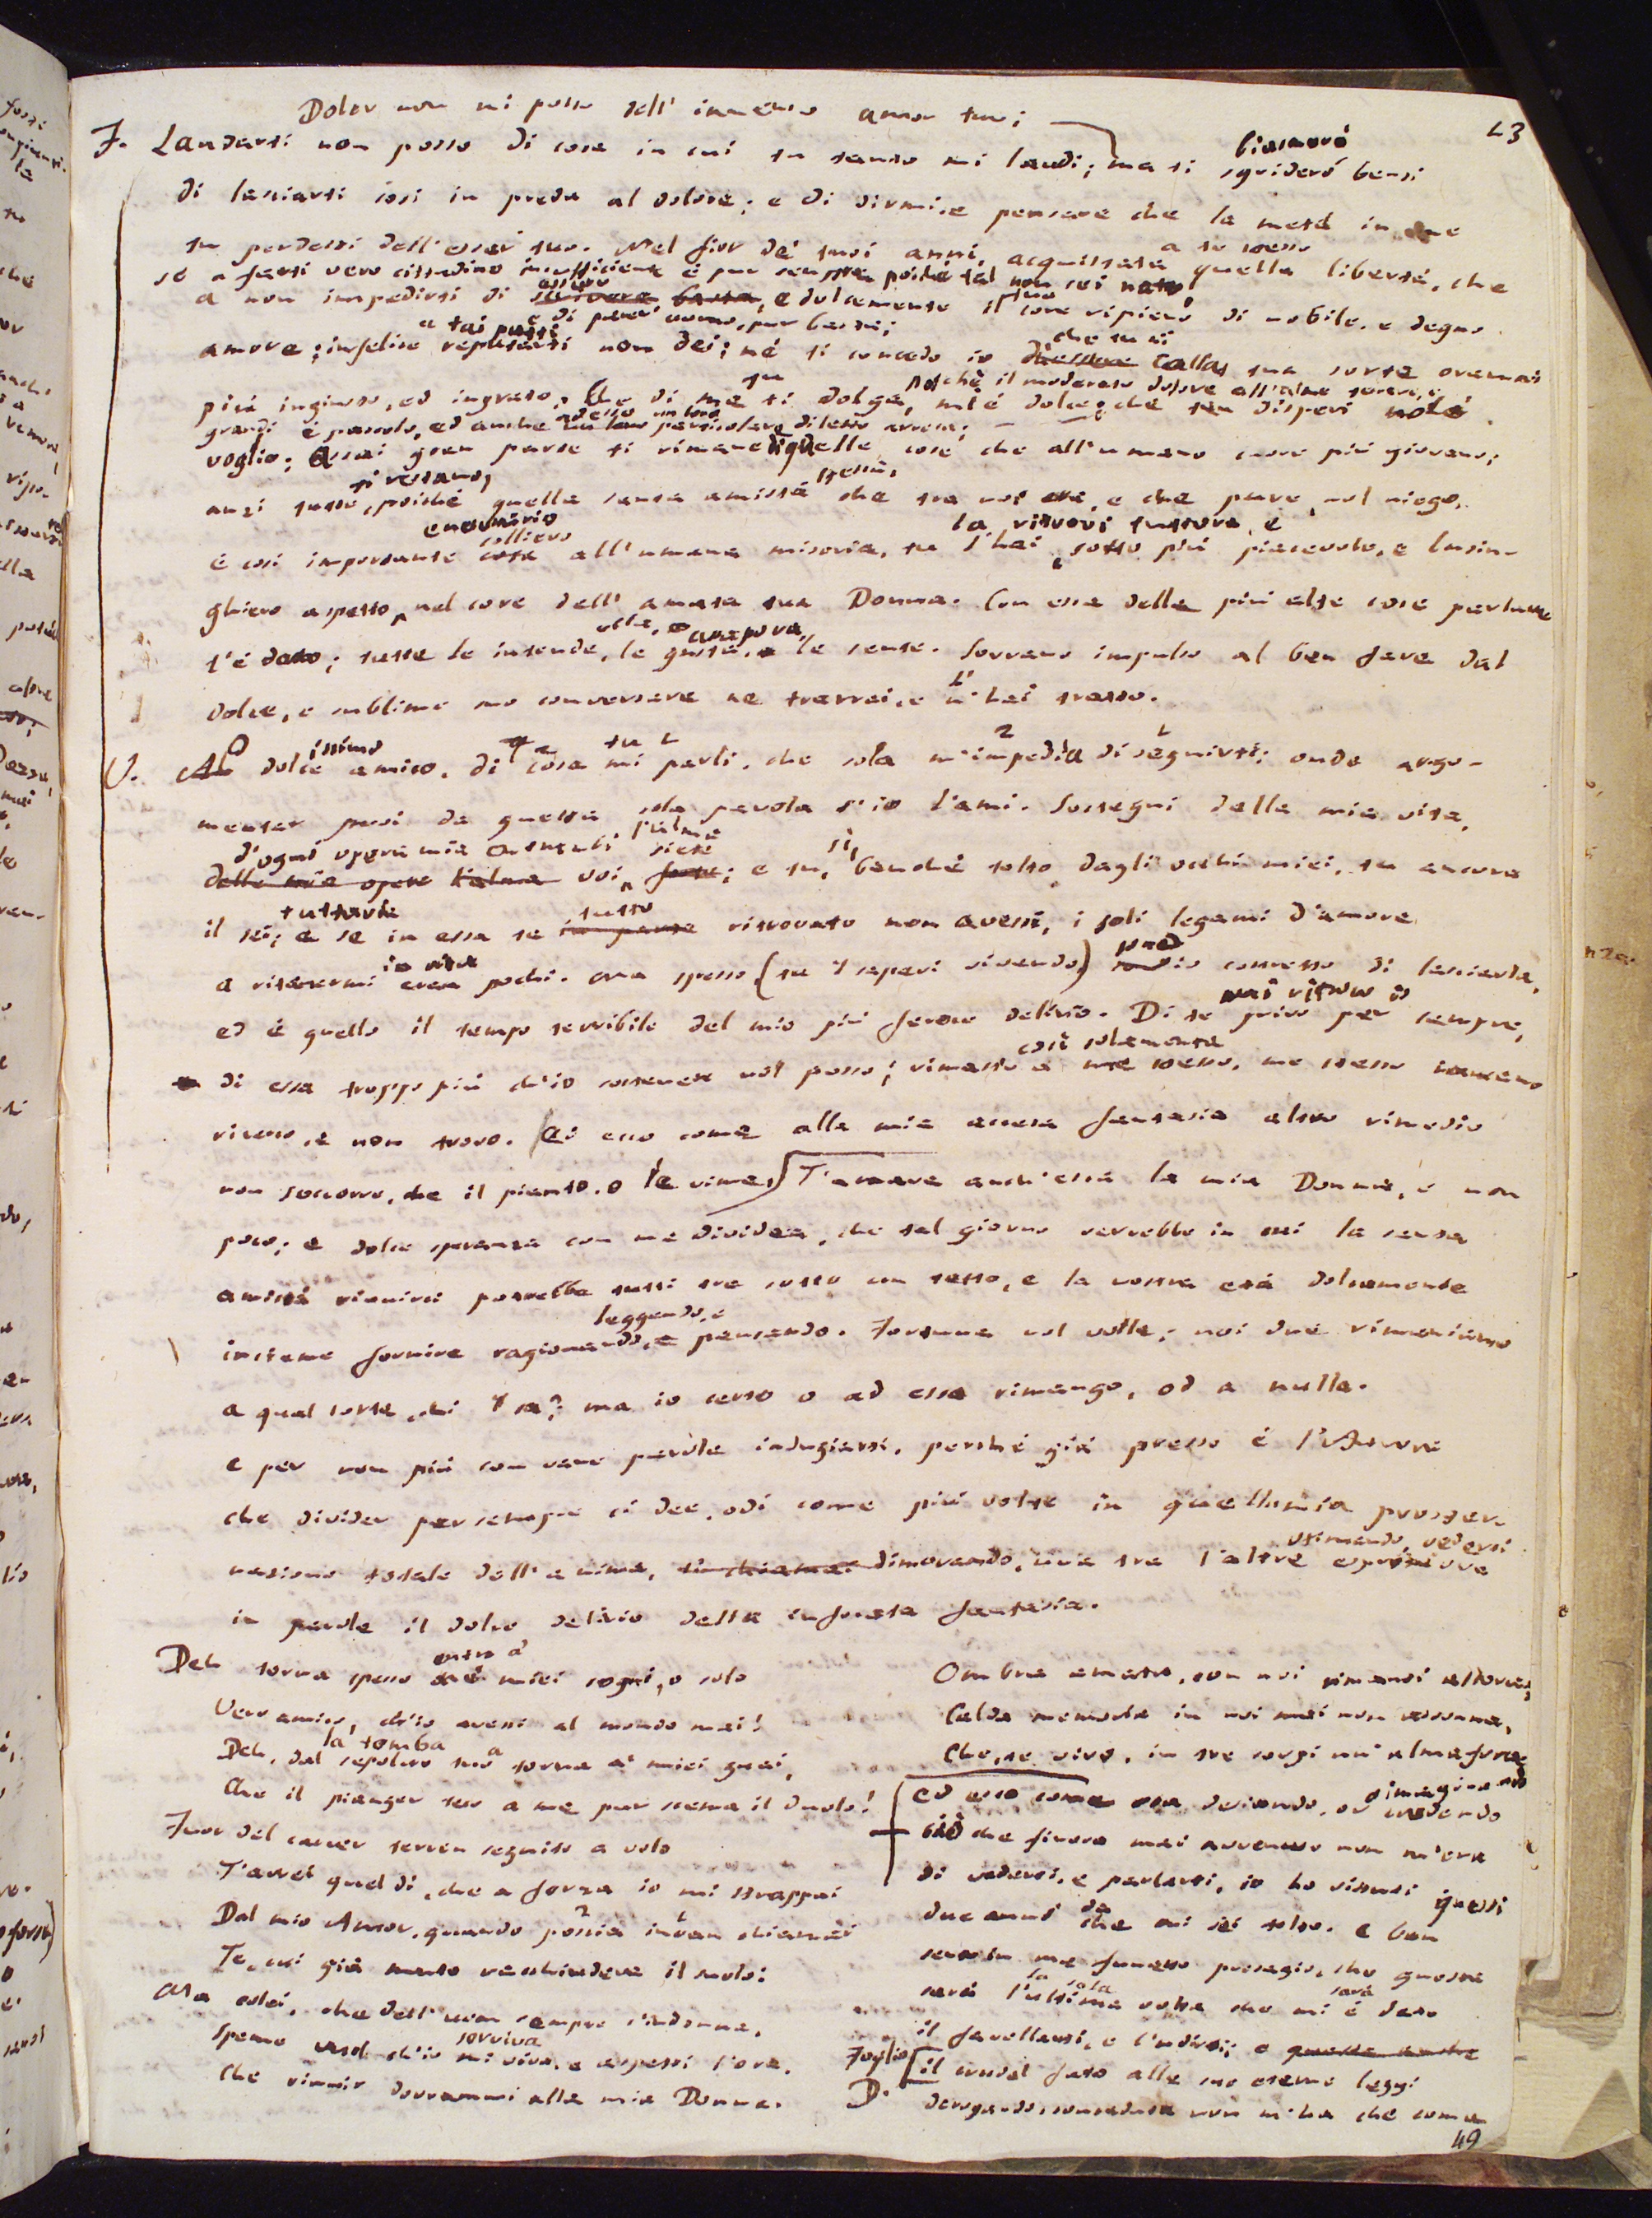 23
Doler non mi posso dell' immenso amor tuo;
F. Laudarti non posso di cosa in cui tu tanto mi laudi; ma ti sgriderò bensì
biasmerò
di lasciarti così in preda al dolore; e di dirmi, e pensare che la metà in me
tu perdessi dell'esser tuo. Nel fior de' tuoi anni, acquistata a te stesso quella libertà, che
se a farti vero cittadino insufficiente è pur sempre poiché tal non sei nato,
a non impedirti di scrivere basta, e dolcemente il core ripieno di nobile, e degno
essere e di parer uomo, pur basta;
amore; infelice a tai patti reputarti non dei; né ti concedo io che tu ti della tua sorte oramai
più ingiusto, ed ingrato. Che di me tu ti dolga, m'è dolce; che tu disperi nol
poiché il moderato dolore all'alme tenere, e
grandi è pascolo, ed anche un loro particolare diletto arreca;
voglio; Assai gran parte ti rimane di quelle cose che all'umano cuore più giovano;
anzi tutte ti restano, poiché quella santa amistà stessa, che tra noi era, e che pare, nol niego,
è così importante cosa all'umana miseria, tu l'hai sotto più piacevole, e lusin-
necessario sollievo
la ritrovi tuttora, e
ghiero aspetto, nel core dell' amata tua Donna. Con essa delle più alte cose parlare
t'è dato; tutte le intende, le gusta, e le sente. Sovrano impulso al ben fare dal
ella, approva,
dolce, e sublime suo conversare ne trarrai, e l' n'hai tratto.
V. O dolcissimo amico, di cosa tu mi parli, che sola m'impedìa di seguirti; onde argo-
mentar puoi da questa sola parola s'io l'ami. Sostegni della mia vita,
d'ogni opera mia l'alma siete
delle mie opere l'alma voi, foste; e tu, sì, benché tolto dagli occhi miei, tu ancora
il sei; e se in essa te tutto ritrovato non avessi, i soli legami d'amore
tuttavia in parte
a ritenermi in vita eran pochi. Ma spesso (tu 'l sapevi vivendo) son io costretto di lasciarla,
ed è quello il tempo terribile del mio più feroce delirio. Di te privo per sempre,
mai ritrovo io
di essa troppo più ch'io sostener nol posso; rimasto così solamente a me stesso, me stesso
ricerco, e non trovo. Ed ecco come alla mia accesa fantasia altro rimedio
non soccorre, che il pianto, o le rime. T'amava anch'essa la mia Donna, e non
poco; e dolce speranza con me dividea, che tal giorno verrebbe in cui la santa
amistà riunirci potrebbe tutti tre sotto un tetto, e la nostra età dolcemente
insieme fornire ragionando, leggendo, e pensando. Fortuna nol volle; noi due rimaniamo
a qual sorte, chi 'l sa? ma io certo o ad essa rimango, od a nulla.
e per non più con vane parole indugiarti, perché già presso è l'Aurora
che divider per sempre ci dee, odi come più volte in quella mia proster-
nazione totale dell'anima, dimorando, una tra l'altre
estimando, vederti
in parole il dolce delirio della infocata fantasia.
Deh torna spesso entro a' miei sogni, o solo
Vero amico, ch'io avessi al mondo mai!
Deh, dal sepolcro tuo torna a' miei guai,
la tomba
Che il pianger teco a me pur scema il duolo!
Fuor del carcer terren seguito a volo
T'avrei quel dì, che a forza io mi strappai
Dal mio Amor, quando poscia invan chiamai
Te, cui già morto racchiudeva il suolo:
Ma colei, che dell'uom sempre s'indonna,
Speme vuol ch'io mi viva, e aspetti l'ora,
sorviva
Che riunir dovrammi alla mia Donna.
Ombra amata, con noi rimanti allora;
Calda memoria in noi mai non assonna,
Che, se vivo, in tre corpi un'alma fora.
Ed ecco come ora desiando, or credendo
immaginando
ciò che finora mai avvenuto non m'era
di vederti, e parlarti, io ho vissuti questi
due anni da che mi sei tolto. e ben
sento in me funesto presagio, che questa
sarà l'ultima volta che mi è dato
la sola sarà
il favellarti, e l'udirti; e questa anche
Foglio [il crudel fato alle sue eterne leggi
D. derogando, conceduta non m'ha che come
49